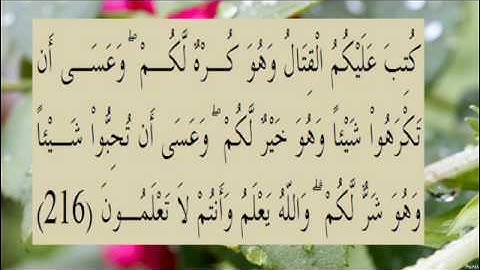 كُتِبَ عَلَيْكُمُ الْقِتَالُ وَهُوَ كُـــرْهٌ لَّكُـــمْ ۖ وَعَسَـــى أَن
تَكْرَهُواْ شَيْئاً وَهُوَ خَيْرٌ لَّكُمْ ۖ وَعَسَى أَن تُحِبُّواْ شَـــيْئاً
وَهُوَ شَرٌّ لَّكُمْ ۗ وَاللَّهُ يَعْلَمُ وَأَنتُمْ لاَ تَعْلَمُـــونَ (216)